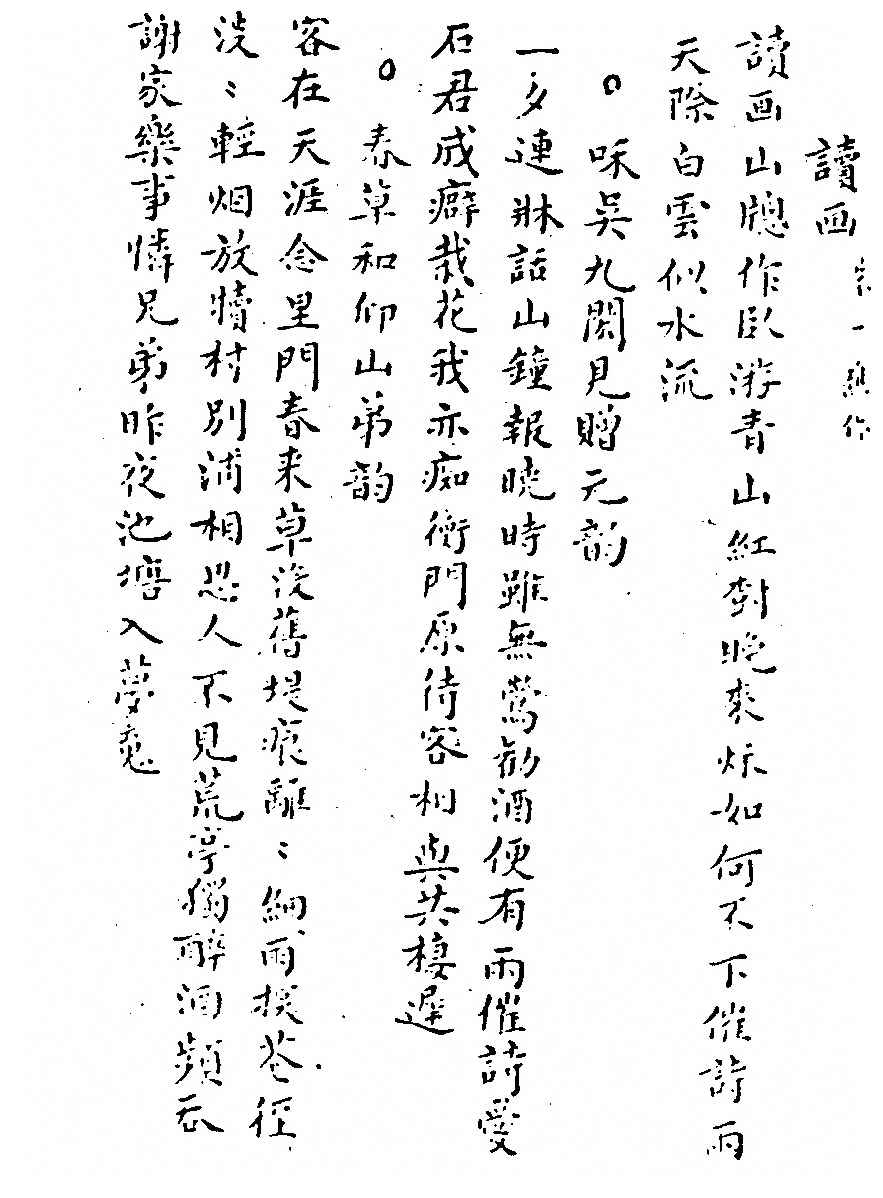 讀画
讀画山牕作臥游青山紅樹晚来秌如何不下催詩雨
天際白雲似水流
○咊吳九閎見贈元韵
一夕連牀話山鐘報曉時雖無鶯勸酒便有雨催詩愛
石君成癖栽花我亦痴衡門原待客相與共棲遲
○春草和仰山弟韵
客在天涯念里門春来草没舊堤痕離〻細雨探花径
淡〻輕烟放犢村別浦相思人不見荒亭獨醉酒頻吞
謝家樂事憐兄弟昨夜池塘入夢魂